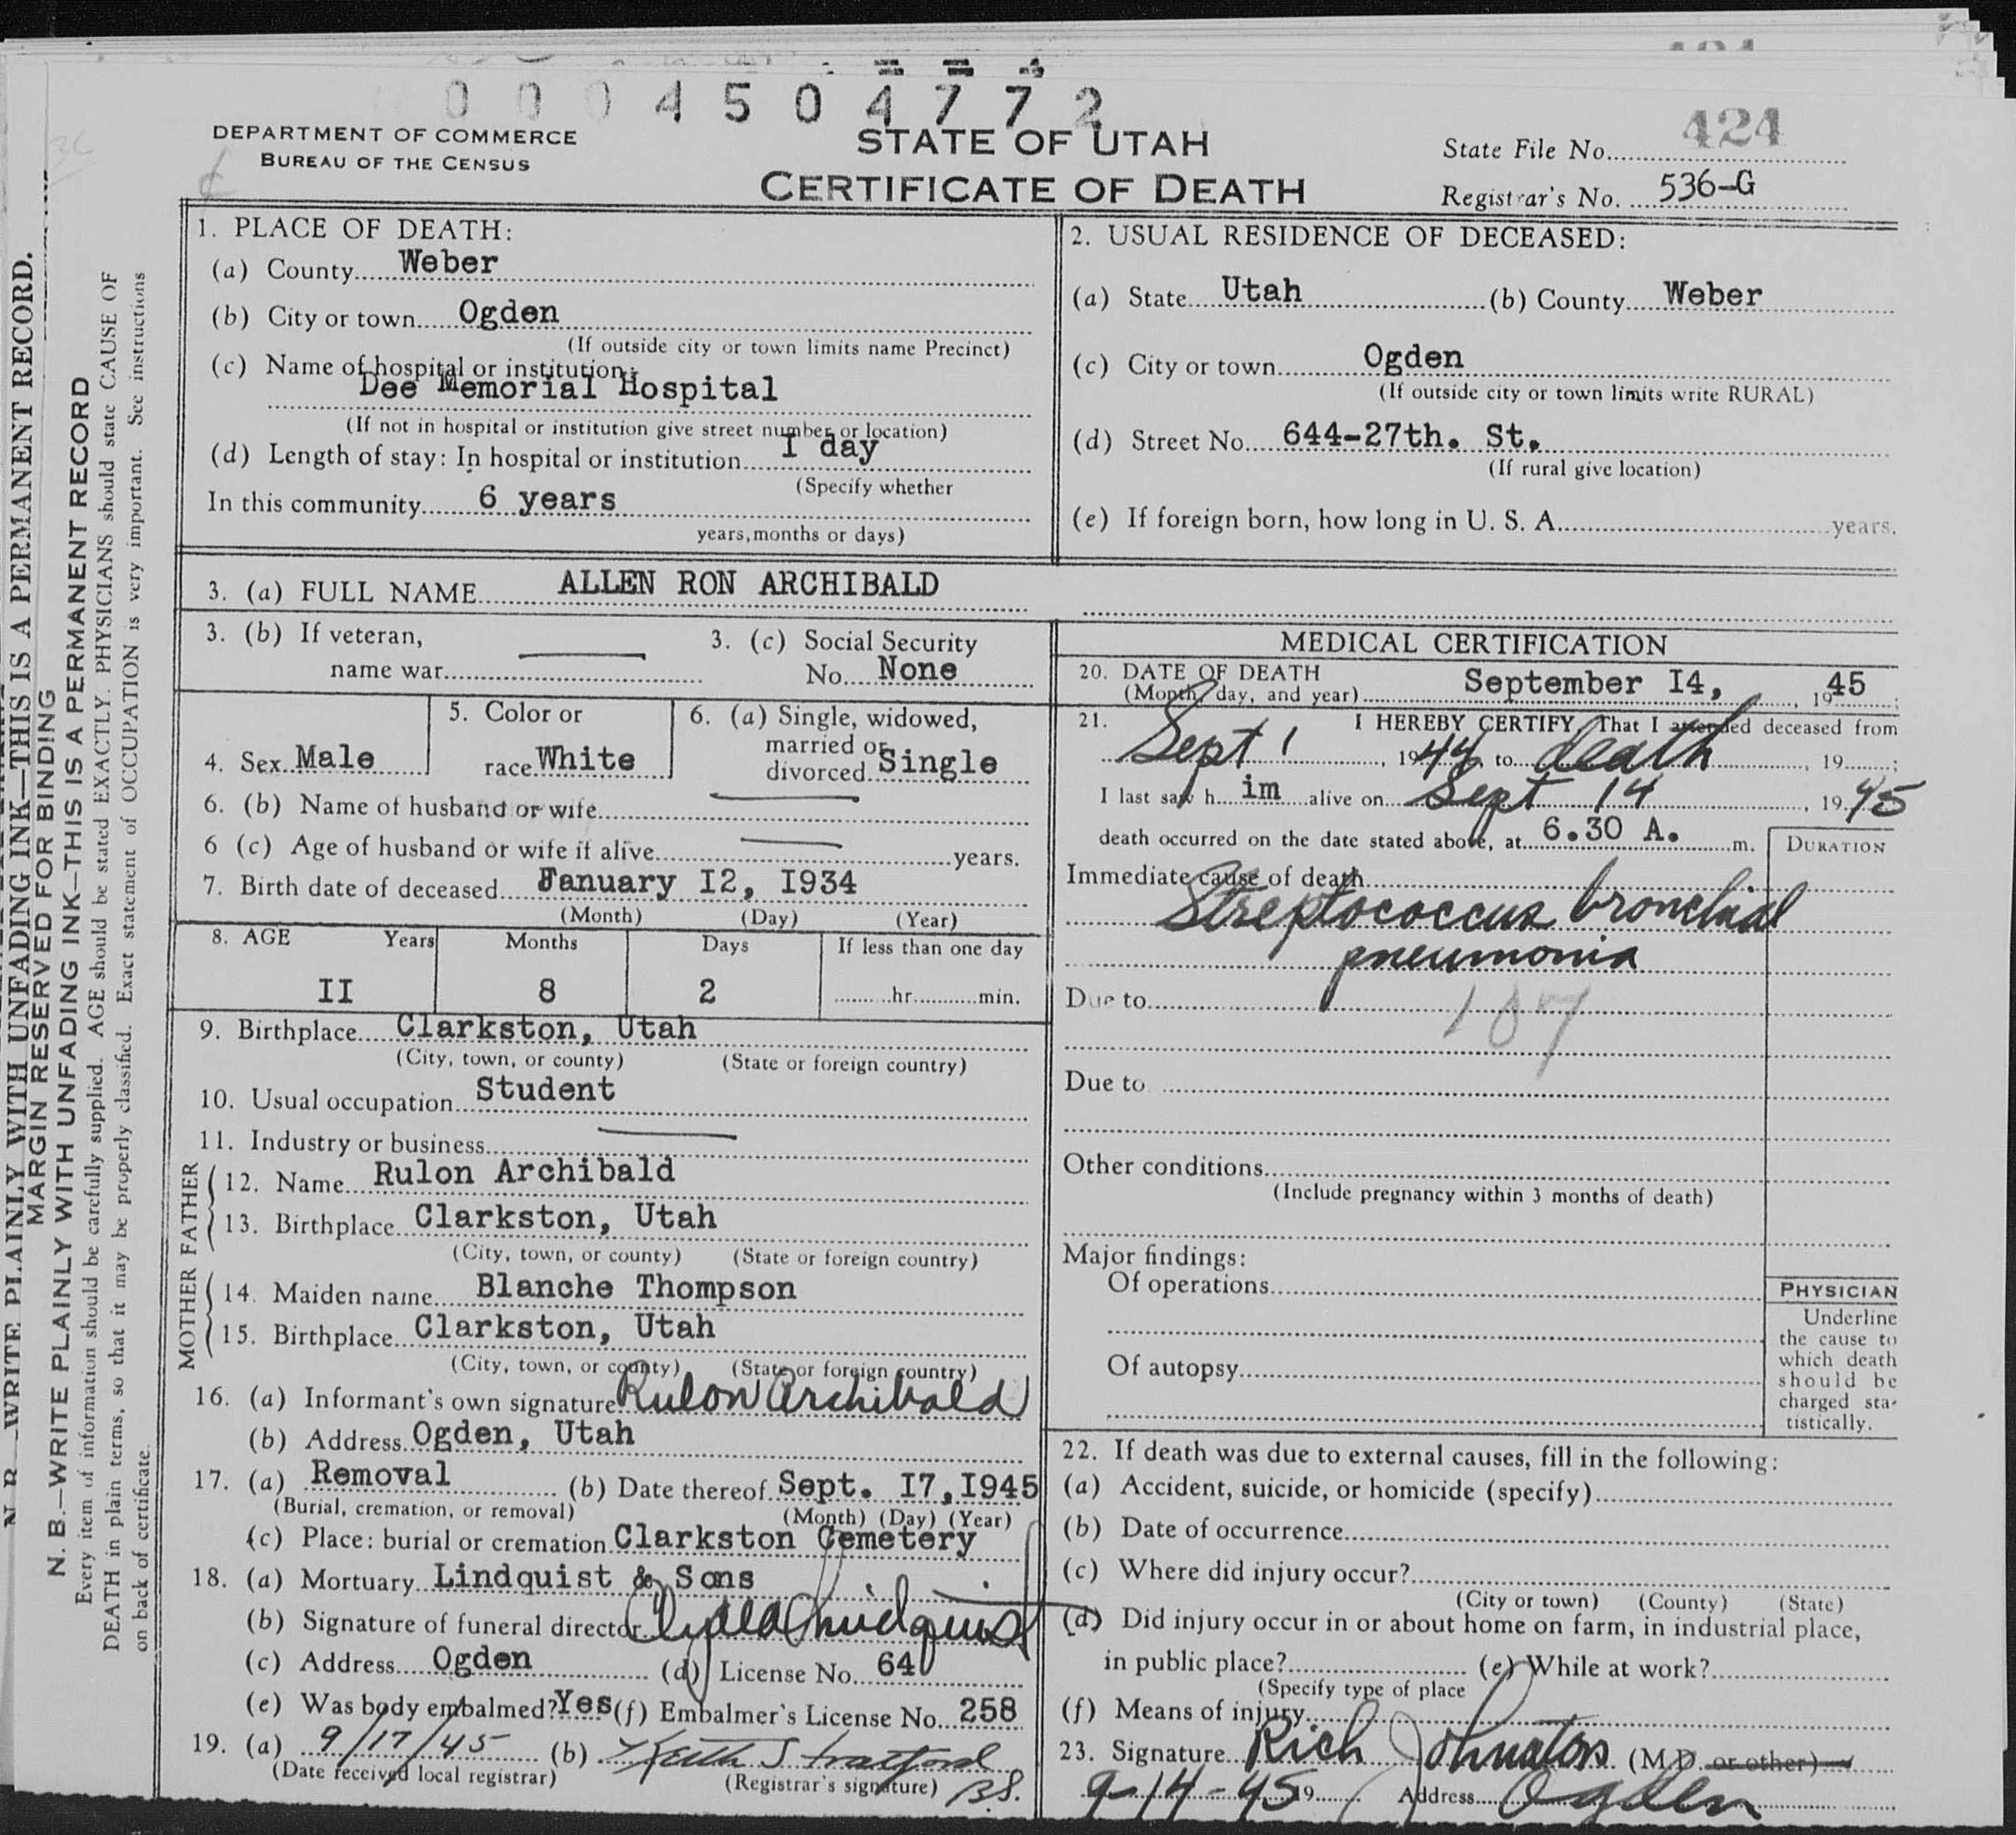 0004504772
424
DEPARTMENT OF COMMERCE
BUREAU OF THE CENSUS
STATE OF UTAH
CERTIFICATE OF DEATH
State File No. 424
Registrar's No. 536-G
1. PLACE OF DEATH:
(a) County Weber
(b) City or town Ogden
(If outside city or town limits name Precinct)
(c) Name of hospital or institution:
Dee Memorial Hospital
(If not in hospital or institution give street number or location)
(d) Length of stay: In hospital or institution I day
(Specify whether
In this community 6 years
years, months or days)
2. USUAL RESIDENCE OF DECEASED:
(a) State Utah (b) County Weber
(c) City or town Ogden
(If outside city or town limits write RURAL)
(d) Street No. 644-27th. St.
(If rural give location)
(e) If foreign born, how long in U. S. A. years.
3. (a) FULL NAME ALLEN RON ARCHIBALD
3. (b) If veteran,
name war
3. (c) Social Security
No. None
4. Sex Male
5. Color or
race White
6. (a) Single, widowed,
married or
divorced Single
6. (b) Name of husband or wife
6 (c) Age of husband or wife if alive years.
7. Birth date of deceased January I2, I934
(Month) (Day) (Year)
8. AGE Years Months Days If less than one day
II 8 2 hr. min.
9. Birthplace Clarkston, Utah
(City, town, or county) (State or foreign country)
10. Usual occupation Student
11. Industry or business
FATHER
12. Name Rulon Archibald
13. Birthplace Clarkston, Utah
(City, town, or county) (State or foreign country)
MOTHER
14. Maiden name Blanche Thompson
15. Birthplace Clarkston, Utah
(City, town, or county) (State or foreign country)
16. (a) Informant's own signature Rulon Archibald
(b) Address Ogden, Utah
17. (a) Removal (b) Date thereof Sept. I7, I945
(Burial, cremation, or removal) (Month) (Day) (Year)
(c) Place: burial or cremation Clarkston Cemetery
18. (a) Mortuary Lindquist & Sons
(b) Signature of funeral director Clyde Lindquist
(c) Address Ogden (d) License No. 64
(e) Was body embalmed? Yes (f) Embalmer's License No. 258
19. (a) 9/17/45 (b) Keith Stratford
(Date received local registrar) (Registrar's signature) BS.
MEDICAL CERTIFICATION
20. DATE OF DEATH
(Month, day, and year) September I4, 1945
21. I HEREBY CERTIFY, That I attended deceased from
Sept 1, 1944, to death, 19 ;
I last saw him alive on Sept 14, 1945
death occurred on the date stated above, at 6.30 A. m.
DURATION
Immediate cause of death
Streptococcus bronchial
pneumonia
Due to
107
Due to
Other conditions
(Include pregnancy within 3 months of death)
Major findings:
Of operations
Of autopsy
PHYSICIAN
Underline
the cause to
which death
should be
charged sta-
tistically.
22. If death was due to external causes, fill in the following:
(a) Accident, suicide, or homicide (specify)
(b) Date of occurrence
(c) Where did injury occur?
(City or town) (County) (State)
(d) Did injury occur in or about home on farm, in industrial place,
in public place? (e) While at work?
(Specify type of place
(f) Means of injury
23. Signature Rich Johnston (M.D. or other)
9-14-45 19 Address Ogden
N. B. WRITE PLAINLY WITH UNFADING INK—THIS IS A PERMANENT RECORD.
MARGIN RESERVED FOR BINDING
N. B.—WRITE PLAINLY WITH UNFADING INK—THIS IS A PERMANENT RECORD
Every item of information should be carefully supplied. AGE should be stated EXACTLY. PHYSICIANS should state CAUSE OF
DEATH in plain terms, so that it may be properly classified. Exact statement of OCCUPATION is very important. See instructions
on back of certificate.